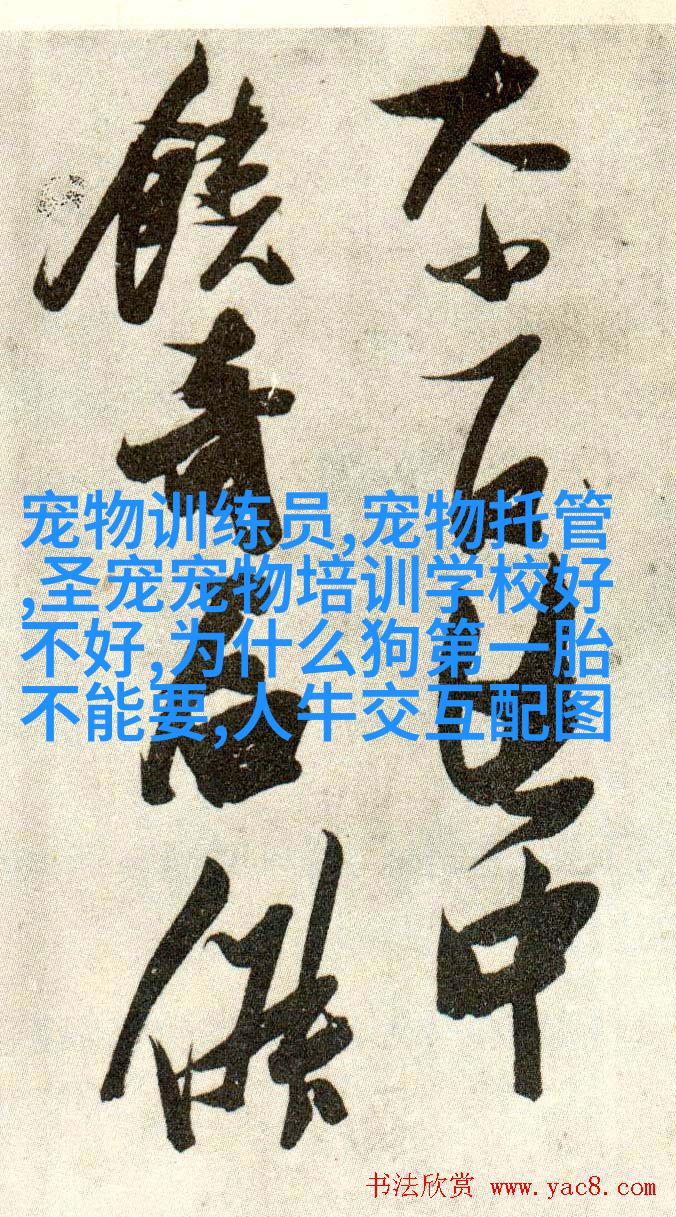 大小中
饒奇
宠物训练员,宠物托管
,圣宠宠物培训学校好
不好,为什么狗第一胎
不能要,人牛交互配图
书法欣赏 www.yac8.com